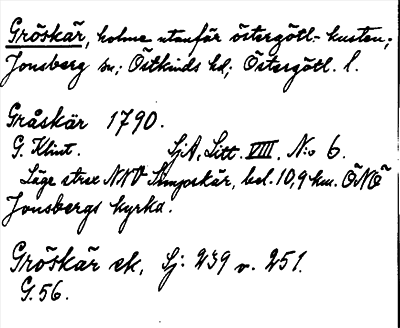 Gröskär, holme utanför östergötl.-kusten;
Jonsberg sn; Östkinds hd; Östergötl. l.
Gråskär 1790.
G. Klint. SjA, Litt. VIII. N:o 6.
Läge strax NNV Limpskär, bel. 10,9 km. ÖNÖ
Jonsbergs kyrka.
Gröskär ek, Sj: 239 v. 251.
G. 56.